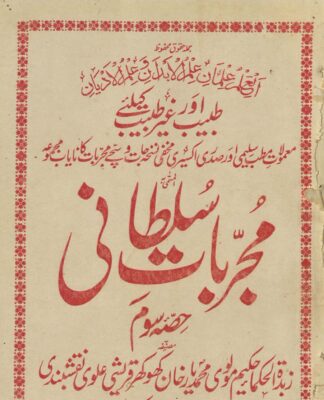 جملہ حقوق محفوظ
العلم علمان علم الابدان و علم الادیان
طبیب اور غیر طبیب کیلئے
معمولات مطب سلیمی اور صدری اکسیری مخفی نسخہ جات و سچے مجربات کا نایاب مجموعہ
المسمّٰی بہ
مُجرّباتِ سُلطانی
حِصّہ سوم
مصنفہ
زبدۃ الحکما حکیم مولوی محمد یار خان کھوکھر قریشی علوی نقشبندی